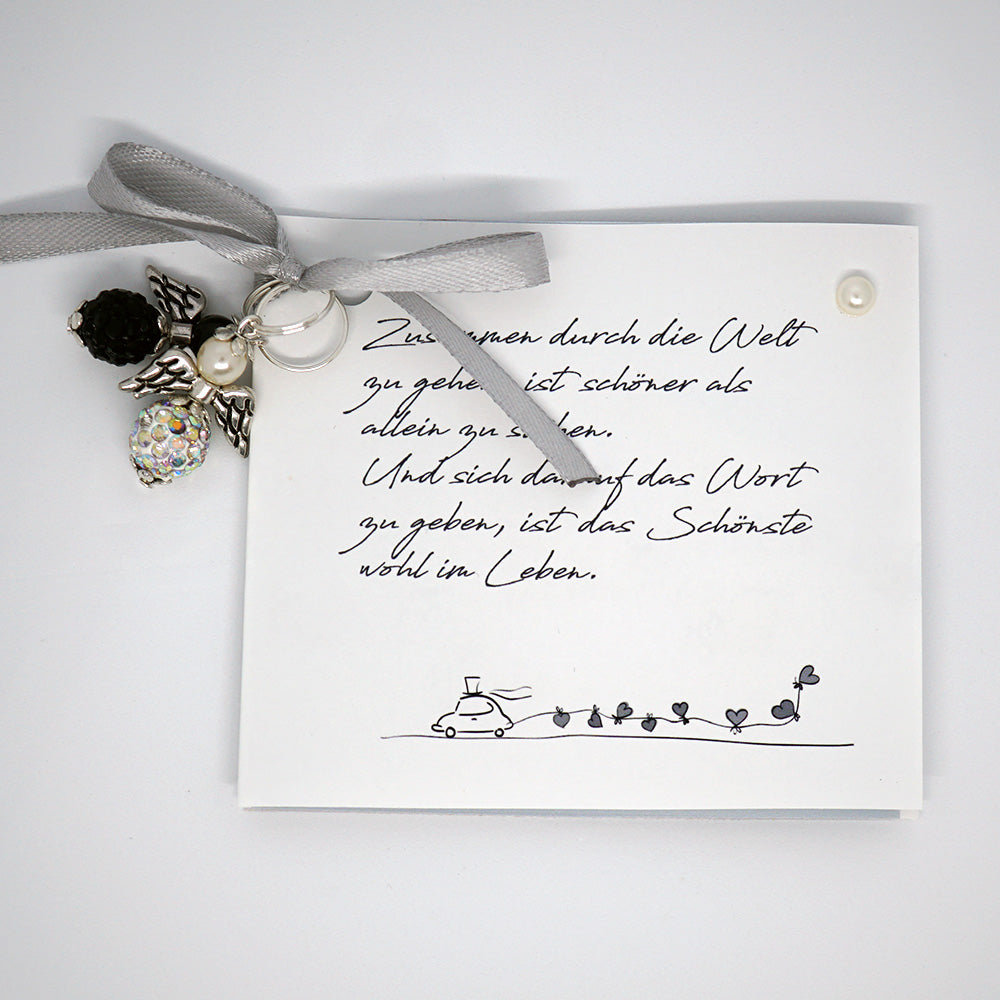 Zusammen durch die Welt
zu gehen ist schöner als
allein zu stehen.
Und sich darauf das Wort
zu geben, ist das Schönste
wohl im Leben.